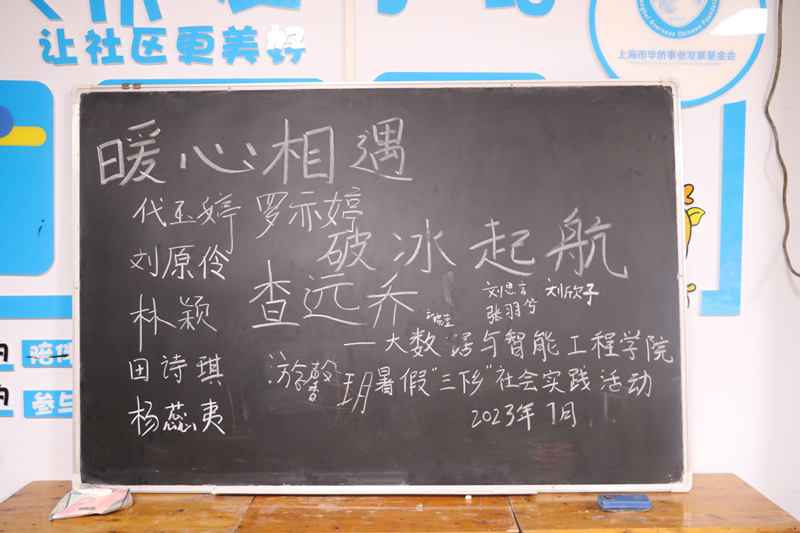 让社区更美好
上海市华侨事业发展基金会
暖心相遇
代玉婷 罗亦婷
破冰起航
刘原伶
查远乔
刘思言 刘欣子
张羽兮
林颖
——大数据与智能工程学院
田诗琪
游馨玥
暑假“三下乡”社会实践活动
杨蕊夷
2023年7月
陪伴
参与